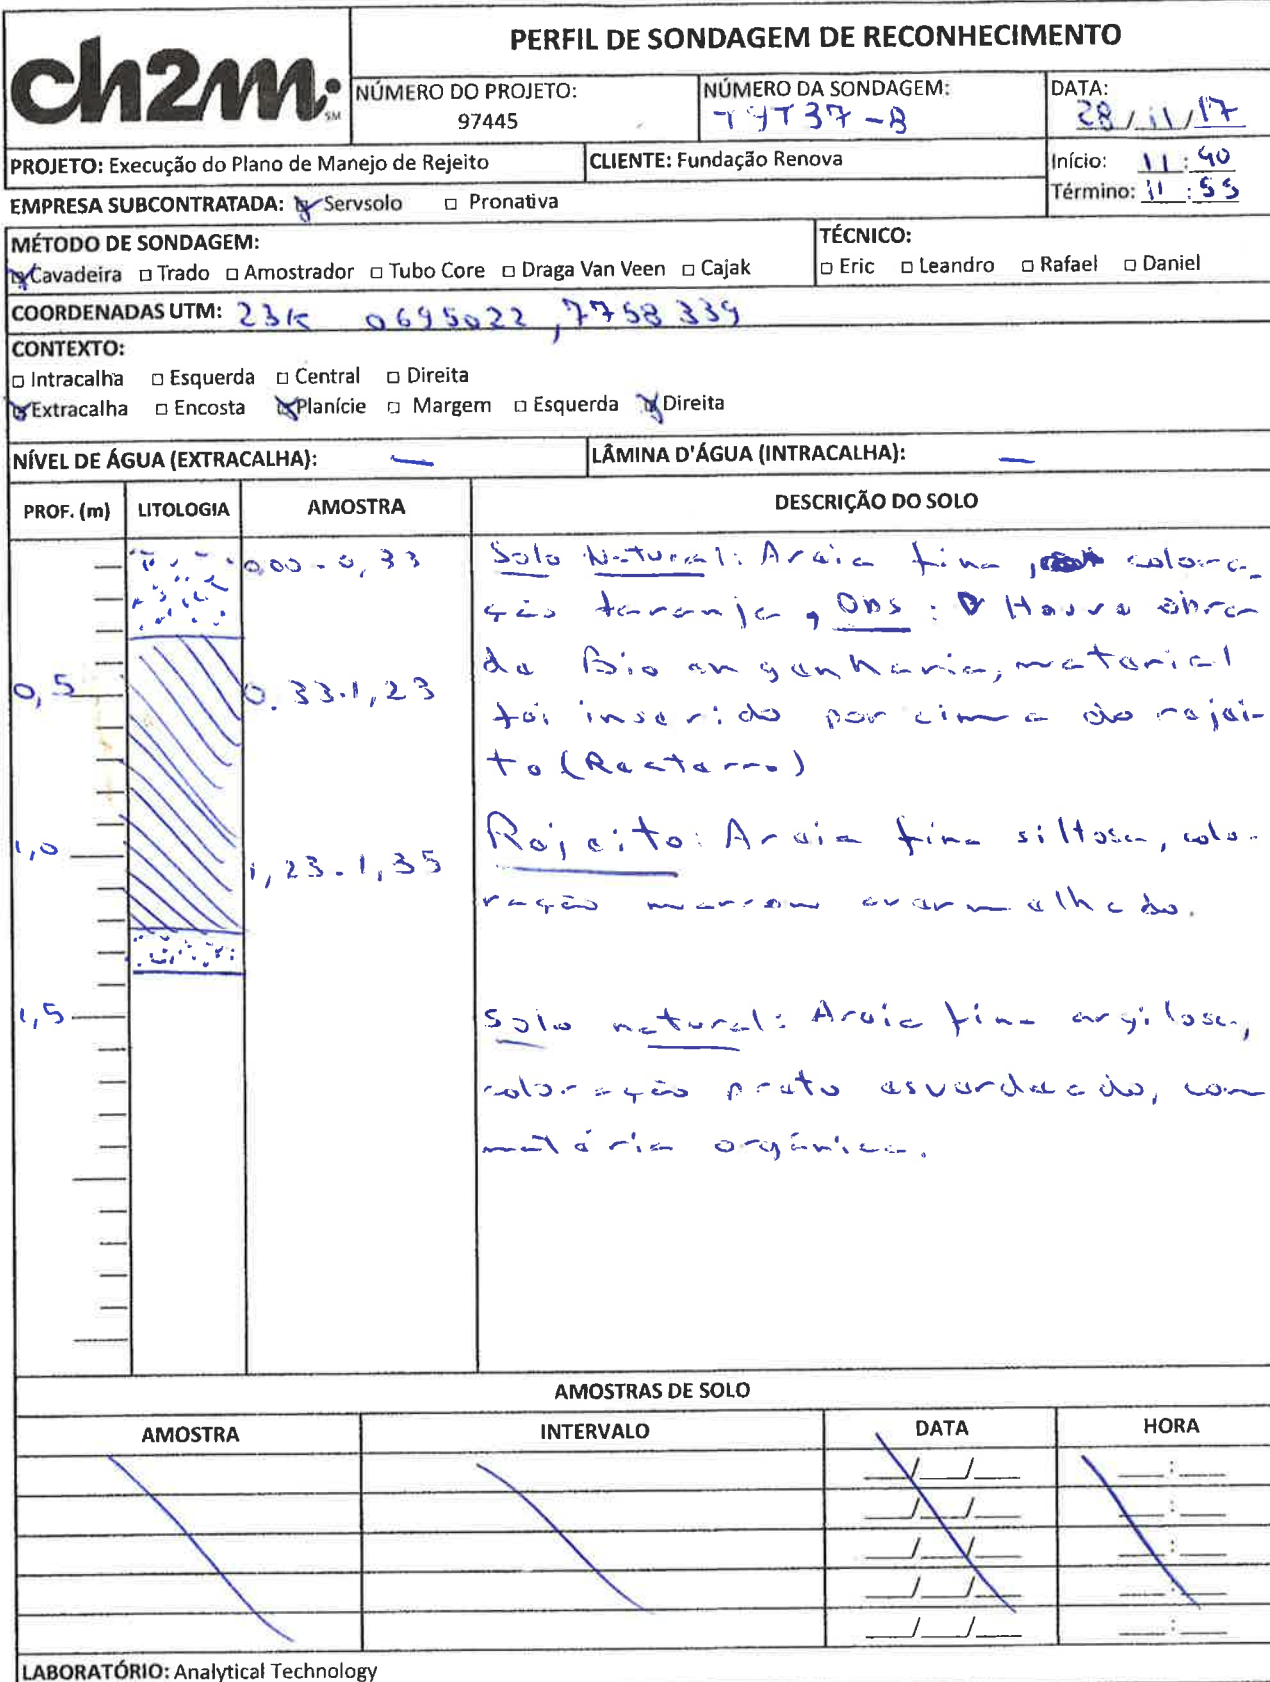 ch2m: SM
PERFIL DE SONDAGEM DE RECONHECIMENTO
NÚMERO DO PROJETO:
97445
NÚMERO DA SONDAGEM:
TYT37-B
DATA:
28/11/17
PROJETO: Execução do Plano de Manejo de Rejeito
CLIENTE: Fundação Renova
Início: 11:40
Término: 11:55
EMPRESA SUBCONTRATADA: Servsolo □ Pronativa
MÉTODO DE SONDAGEM:
Cavadeira □ Trado □ Amostrador □ Tubo Core □ Draga Van Veen □ Cajak
TÉCNICO:
□ Eric □ Leandro □ Rafael □ Daniel
COORDENADAS UTM: 23K 0695022, 7758339
CONTEXTO:
□ Intracalha □ Esquerda □ Central □ Direita
Extracalha □ Encosta Planície □ Margem □ Esquerda Direita
NÍVEL DE ÁGUA (EXTRACALHA): —
LÂMINA D'ÁGUA (INTRACALHA): —
PROF. (m) LITOLOGIA AMOSTRA DESCRIÇÃO DO SOLO
0,5
1,0
1,5
0,00-0,33
0.33-1,23
1,23-1,35
Solo Natural: Areia fina, colora-
ção laranja, Obs: Houve obra
de Bio engenharia, material
foi inserido por cima do rejei-
to (Reaterro)
Rejeito: Areia fina siltosa, colo-
ração marrom avermelhado.
Solo natural: Areia fina argilosa,
coloração preto esverdeado, com
matéria orgânica.
AMOSTRAS DE SOLO
AMOSTRA INTERVALO DATA HORA
___/___/___ ___:___
___/___/___ ___:___
___/___/___ ___:___
___/___/___ ___:___
___/___/___ ___:___
LABORATÓRIO: Analytical Technology